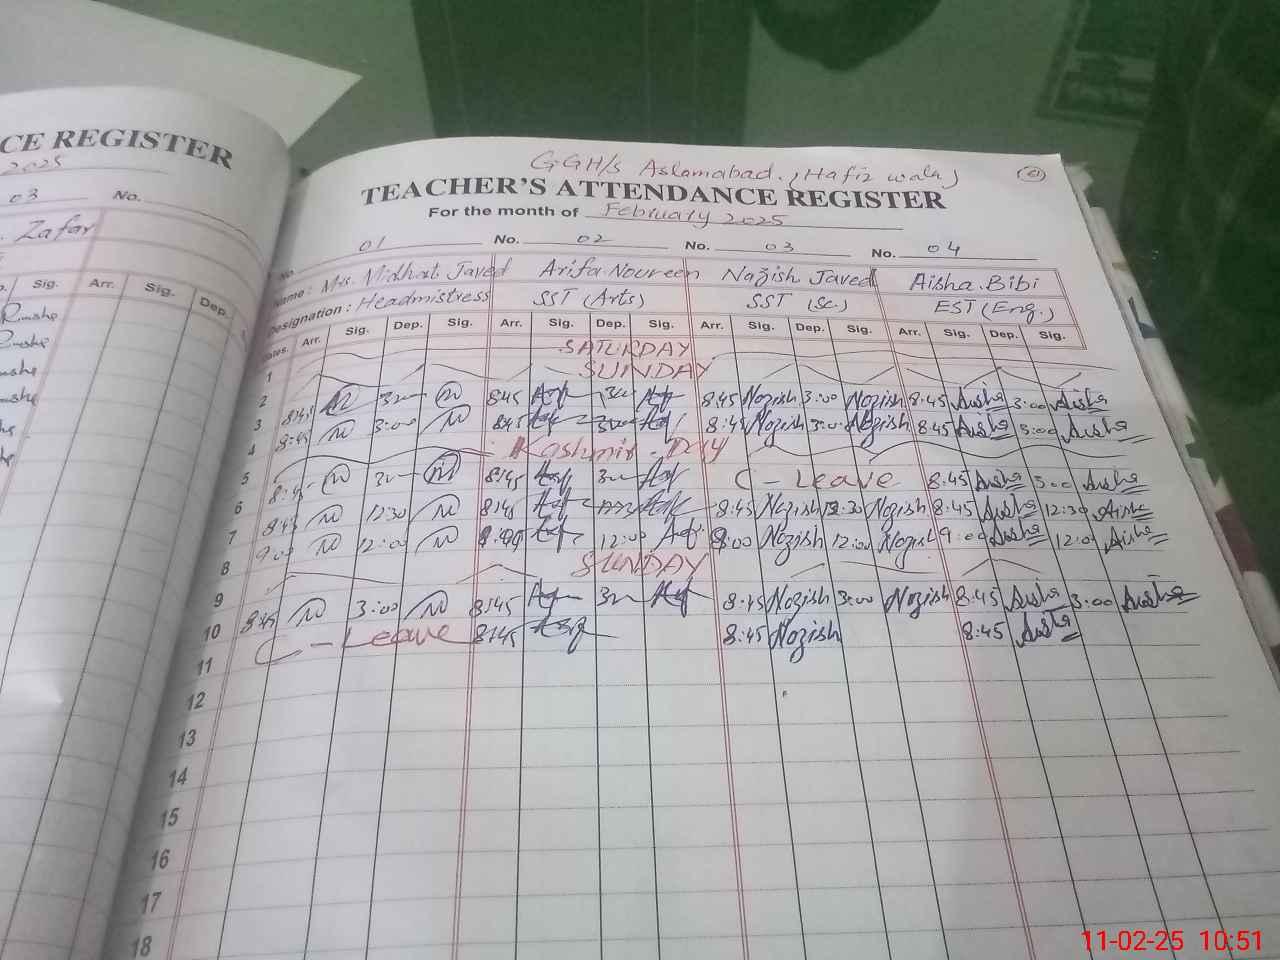 CE REGISTER
2025
03 No.
. Zafar
Sig. Arr. Sig. Dep.
GGH/s Aslamabad. (Hafiz wala)
TEACHER'S ATTENDANCE REGISTER
For the month of February 2025
No. 01 No. 02 No. 03 No. 04
Name: Mrs. Midhat Javed Arifa Noureen Nazish Javed Aisha Bibi
Designation: Headmistress SST (Arts) SST (Sc.) EST (Eng.)
Dates. Arr. Sig. Dep. Sig. Arr. Sig. Dep. Sig. Arr. Sig. Dep. Sig. Arr. Sig. Dep. Sig.
1 SATURDAY
2 SUNDAY
3 8:45 8:45 8:45 Nazish 3:00 Nazish 8:45 Aisha 3:00 Aisha
4 8:45 3:00 8:45 8:45 Nazish 3:00 Nazish 8:45 Aisha 3:00 Aisha
5 Kashmir Day
6 8:45 8:45 C-Leave 8:45 Aisha 3:00 Aisha
7 8:45 12:30 8:45 8:45 Nazish 12:30 Nazish 8:45 Aisha 12:30 Aisha
8 9:00 12:00 12:00 Nazish 12:00 Nazish 9:00 Aisha 12:00 Aisha
9 SUNDAY
10 8:45 3:00 8:45 8:45 Nazish 3:00 Nazish 8:45 Aisha 3:00 Aisha
11 C-Leave 8:45 8:45 Nazish 8:45 Aisha
12
13
14
15
16
17
18
11-02-25 10:51